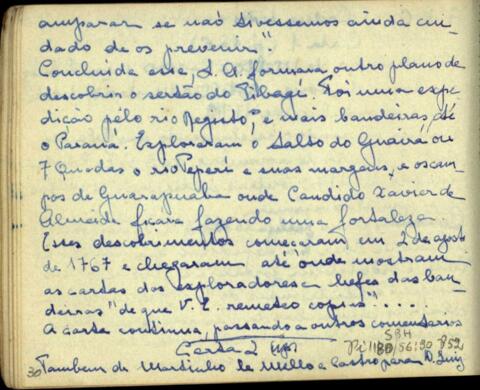 amparar se não tivessemos ainda cui-
dado de os prevenir".
Concluida esse, S. A. formava outro plano de
descobrir o sertão do Tibagi. Foi uma expe-
dição pélo rio Registo, e mais bandeiras, até
o Paraná. Exploraram o Salto do Guairá ou
7 Quedas o rio Peperi e suas margens, e os cam-
pos de Guarapuaba onde Candido Xavier de
Almeida ficara fazendo uma fortaleza.
Esses descobrimentos começaram em 2 de agosto
de 1767 e chegaram até onde mostram
as cartas dos exploradores e chefes das ban-
deiras "de que V. E. remeteo copias"....
A carta continua, passando a outros comentarios
Carta 2
Tambem de Martinho de Mello e Castro para D. Luiz
30